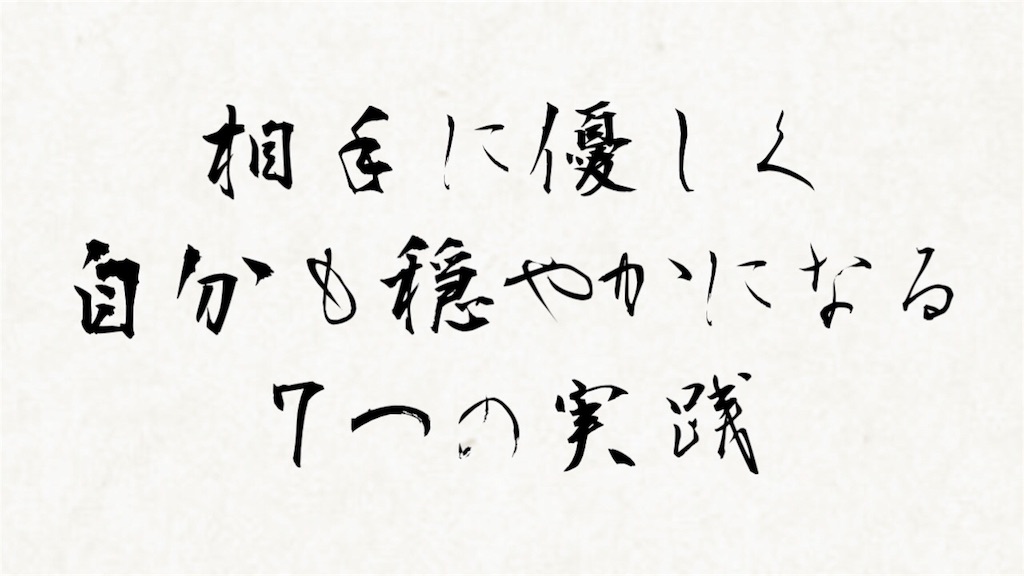 相手に優しく
自分も穏やかになる
7つの実践